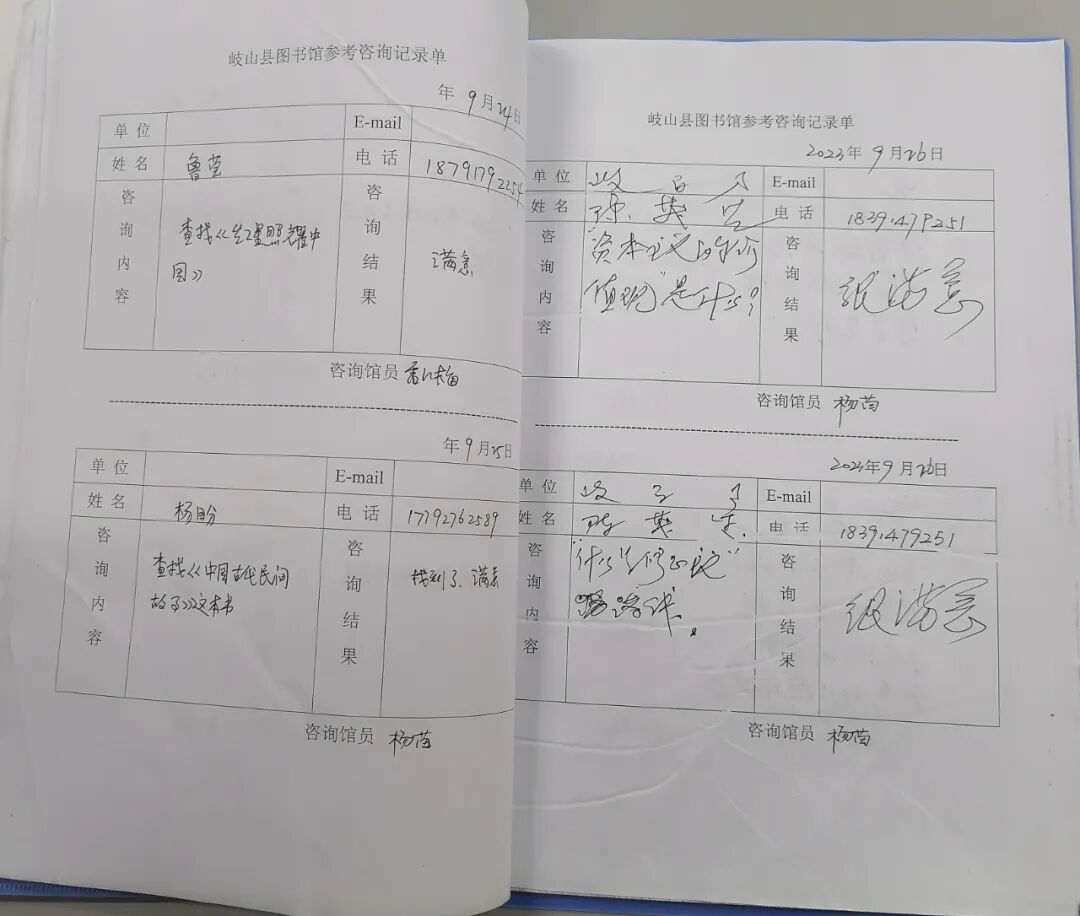 岐山县图书馆参考咨询记录单
年 9月24日
单位 E-mail
姓名 鲁莹 电话 1879179225
咨询内容 查找《红星照耀中
国》
咨询结果 满意
咨询馆员
年9月25日
单位 E-mail
姓名 杨盼 电话 17792762589
咨询内容 查找《中国古代民间
故事》这本书
咨询结果 找到了、满意
咨询馆员 杨苗
岐山县图书馆参考咨询记录单
2023年 9月26日
单位 E-mail
姓名 电话 18391479251
咨询内容 "资本主义的
值观"是什么?
咨询结果 很满意
咨询馆员 杨苗
2023年9月26日
单位 E-mail
姓名 电话 18391479251
咨询内容 "什么
路线。
咨询结果 很满意
咨询馆员 杨苗